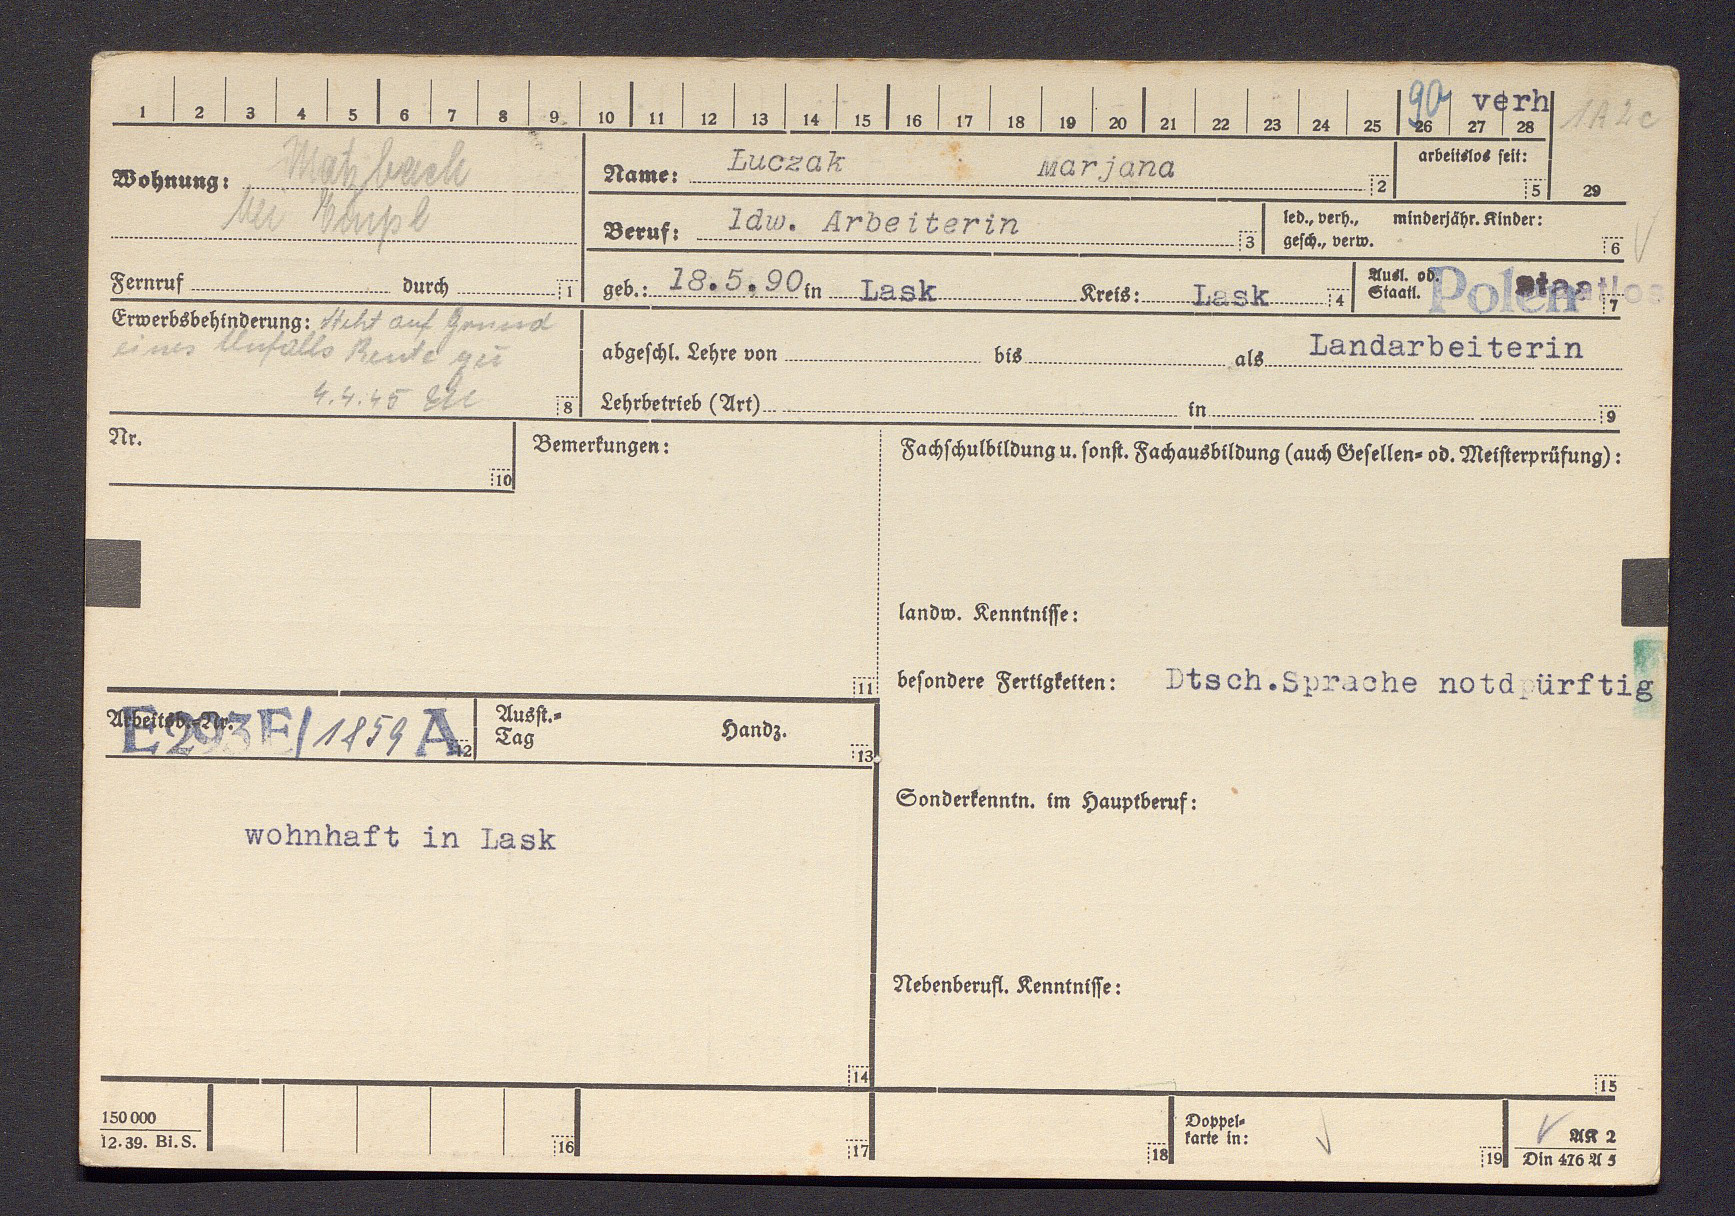 1 2 3 4 5 6 7 8 9 10 11 12 13 14 15 16 17 18 19 20 21 22 23 24 25 26 27 28 29
90 verh 1A2c
Wohnung: Matzbach
bei
Fernruf durch 1
Name: Luczak Marjana 2
arbeitslos seit: 5
Beruf: ldw. Arbeiterin 3
led., verh., minderjähr. Kinder:
gesch., verw. 6
geb.: 18.5.90 in Lask Kreis: Lask 4
Ausl. od.
Staatl. Polen Staatlos 7
Erwerbsbehinderung: Steht auf Grund
eines Unfalls Rente zu
4.4.45 8
abgeschl. Lehre von bis als Landarbeiterin
Lehrbetrieb (Art) in 9
Nr. 10
Bemerkungen: 11
Fachschulbildung u. sonst. Fachausbildung (auch Gesellen= od. Meisterprüfung):
landw. Kenntnisse:
besondere Fertigkeiten: Dtsch.Sprache notdpürftig
Arbeitsb.-Nr. E293E/1859 A 12
Ausst.=
Tag Handz. 13
Sonderkenntn. im Hauptberuf:
wohnhaft in Lask
Nebenberufl. Kenntnisse:
14 15
150 000
12.39. Bi.S.
16 17 18
Doppel=
karte in: 19
AK 2
Din 476 A 5